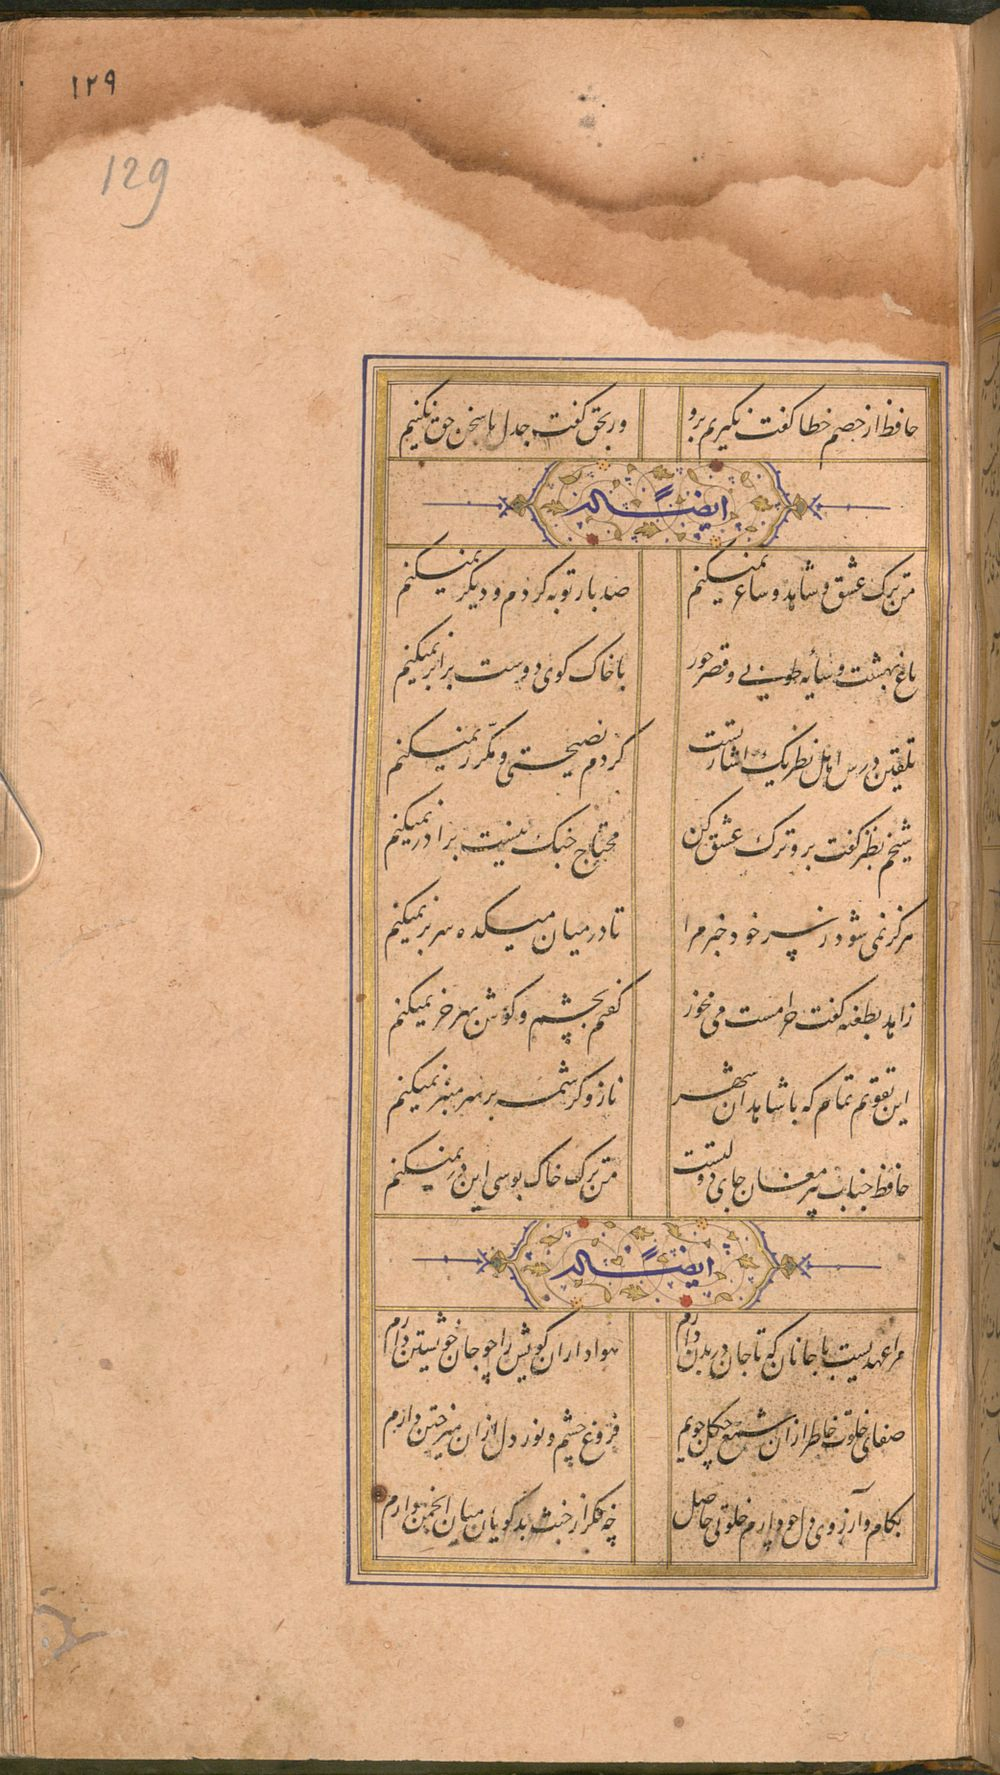 ١٢٩
129
حافظ ار خصم خطا گفت نگیریم برو ور بحق گفت جدل با سخن حق نکنیم
ایضاً له
من ترک عشق و شاهد و ساغر نمیکنم صد بار توبه کردم و دیگر نمیکنم
باغ بهشت و سایه طوبی و قصر حور با خاک کوی دوست برابر نمیکنم
تلقین درس اهل نظر یک اشارتست کردم نصیحتی و مکرر نمیکنم
شیخم بطنز گفت برو ترک عشق کن محتاج جنگ نیست برادر نمیکنم
هرگز نمی شود ز سر خود خبر مرا تا در میان میکده سر بر نمیکنم
زاهد بطعنه گفت حرامست می مخور گفتم بچشم و گوش بهر خر نمیکنم
این تقویم تمام که با شاهدان شهر ناز و کرشمه بر سر منبر نمیکنم
حافظ جناب پیر مغان جای دولتست من ترک خاک بوسی این در نمیکنم
ایضاً له
مرا عهدیست با جانان که تا جان در بدن دارم هواداران کویش را چو جان خویشتن دارم
صفای خلوت خاطر از آن شمع چگل جویم فروغ چشم و نور دل از آن مهر ختن دارم
بکام و آرزوی دل چو دارم خلوتی حاصل چه فکر از خبث بدگویان میان انجمن دارم